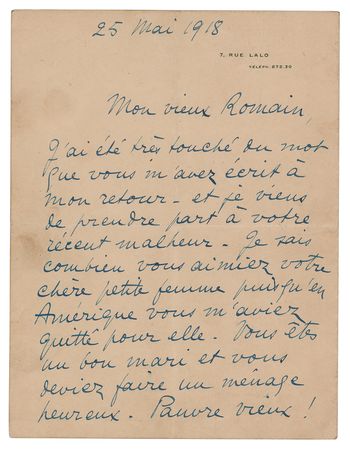 25 Mai 1918
7, RUE LALO
TÉLÉPH. 672.30
Mon vieux Romain,
J'ai été très touché du mot
que vous m'avez écrit à
mon retour - et je viens
de prendre part à votre
récent malheur - Je sais
combien vous aimiez votre
chère petite femme puisqu'en
Amérique vous m'aviez
quitté pour elle - Vous êtes
un bon mari et vous
deviez faire un ménage
heureux - Pauvre vieux !